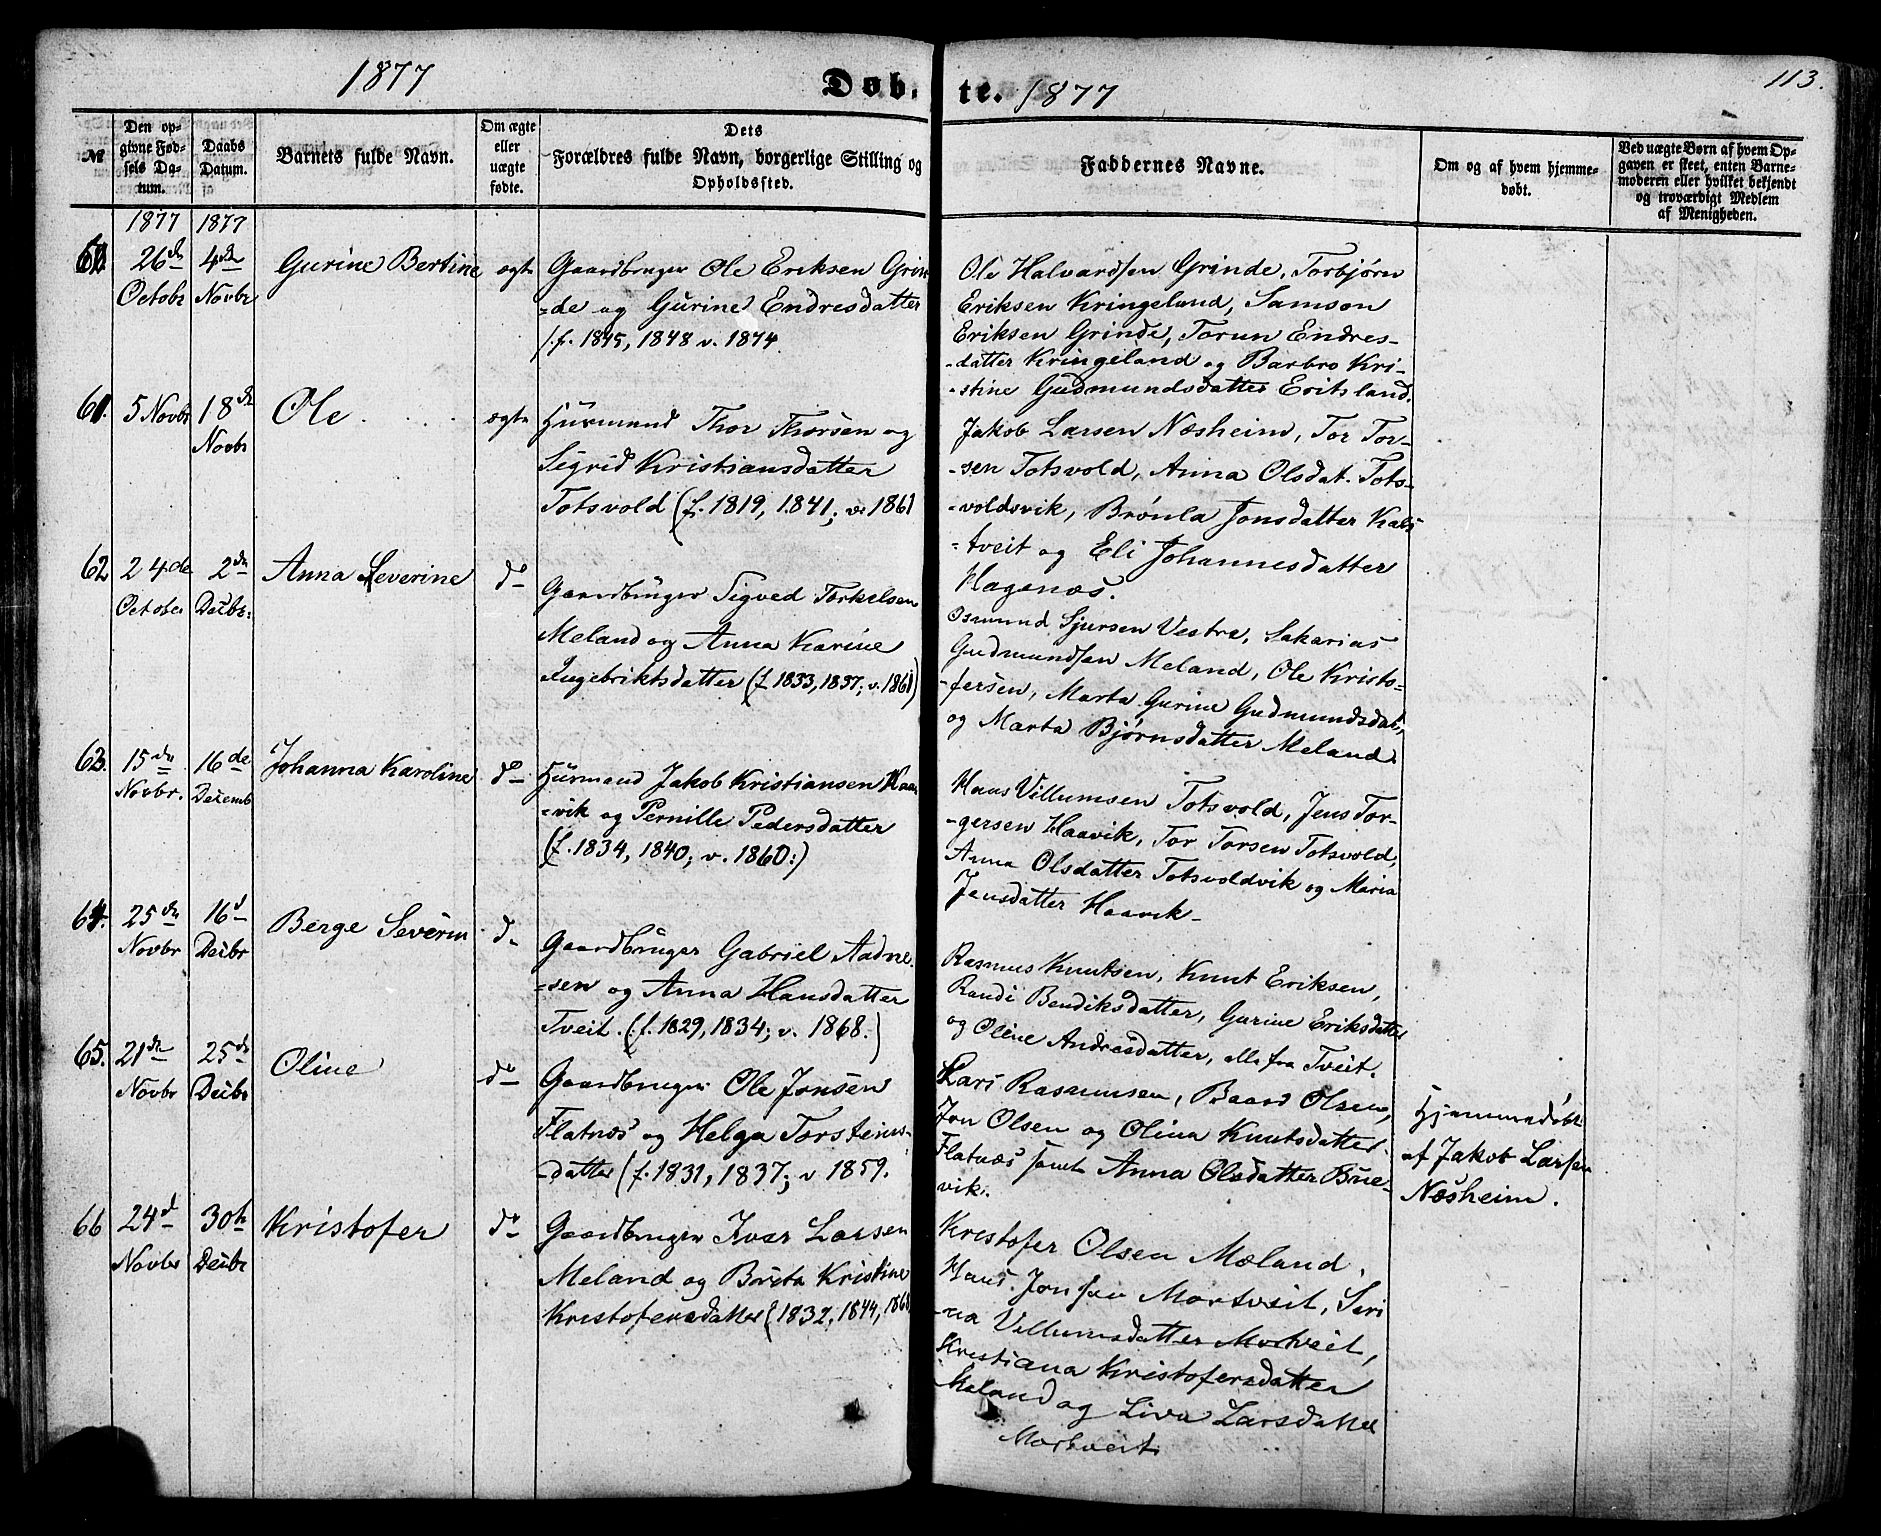 1877
Døb-
te. 1877
113.
№
Den op-
givne Fød-
sels Da-
tum.
Daabs
Datum.
Barnets fulde Navn.
Om ægte
eller
uægte
fødte.
Dets
Forældres fulde Navn, borgerlige Stilling og
Opholdssted.
Faddernes Navne.
Om og af hvem hjemme-
døbt.
Ved uægte Børn af hvem Op-
gaven er skeet, enten Barne-
moderen eller hvilket bekjendt
og troværdigt Medlem
af Menigheden.
1877 1877
60
26de
Octobr
4de
Novbr
Gurine Bertine
ægte
Gaardbruger Ole Eriksen Grin
=de og Gurine Endresdatter
/:f. 1845, 1848 v. 1874
Ole Halvardsen Grinde, Torbjørn
Eriksen Kringeland, Samson
Eriksen Grinde, Torun Endres-
-datter Kringeland og Barbro Kri-
-stine Gudmundsdatter Eritsland.
61.
5 Novbr
18de
Novbr
Ole
ægte
Huusmand Thor Thorsen og
Sigrid Kristiansdatter
Totsvold (f. 1819, 1841; v. 1861
Jakob Larsen Næsheim, Tor Tor-
-sen Totsvold, Anna Olsdat. Tots-
-voldsvik, Brønla Jonsdatter Kals
-tveit og Eli Johannesdatter
Hagenæs.
62
24de
October
2den
Decbr.
Anna Severine
do
Gaardbruger Sigved Torkelsen
Meland og Anna Karine
Ingebriktsdatter (f. 1833, 1837; v. 1861)
Osmund Sjursen Vestre, Sakarias
Gudmundsen Meland, Ole Kristo-
-fersen, Marta Gurine Gudmundsdat.
og Marta Bjørnsdatter Meland.
63.
15de
Novbr.
16de
Decemb
Johanna Karoline
do
Huusmand Jakob Kristiansen Haa
=vik og Pernille Pedersdatter
(f. 1834, 1840; v. 1860:)
Hans Villumsen Totsvold, Jens Tor-
-gersen Haavik, Tor Torsen Totsvold,
Anna Olsdatter Totsvoldvik og Maria
Jensdatter Haavik-
64.
25de
Novbr
16d
Decbr
Berge Severin
do
Gaardbruger Gabriel Aadne
=sen og Anna Hansdatter
Tveit. (:f. 1829, 1834; v. 1868.)
Rasmus Knutsen, Knut Eriksen,
Randi Bendiksdatter, Gurine Eriksdatter
og Oline Andresdatter, alle fra Tveit.
65.
21de
Novbr
25de
Decbr
Oline
do
Gaardbruger Ole Jonsen
Flatnæs og Helga Torsteins-
-datter (f. 1831, 1837; v 1859.
Lars Rasmusen, Baard Olsen,
Jon Olsen og Olina Knutsdatter
Flatnæs samt Anna Olsdatter Brue-
vik.
Hjemmedøbt
af Jakob Larsen
Næsheim.
66
24d
Novbr
30te
Decbr
Kristofer
do
Gaardbruger Ivar Larsen
Meland og Berta Kristine
Kristofersdatter (1832, 1844, 1868
Kristofer Olsen Mæland,
Hans Jonsen Mortveit, Seri
-na Villumsdatter Mortveit,
Kristiana Kristofersdatter
Meland og Liva Larsdatter
Mortveit